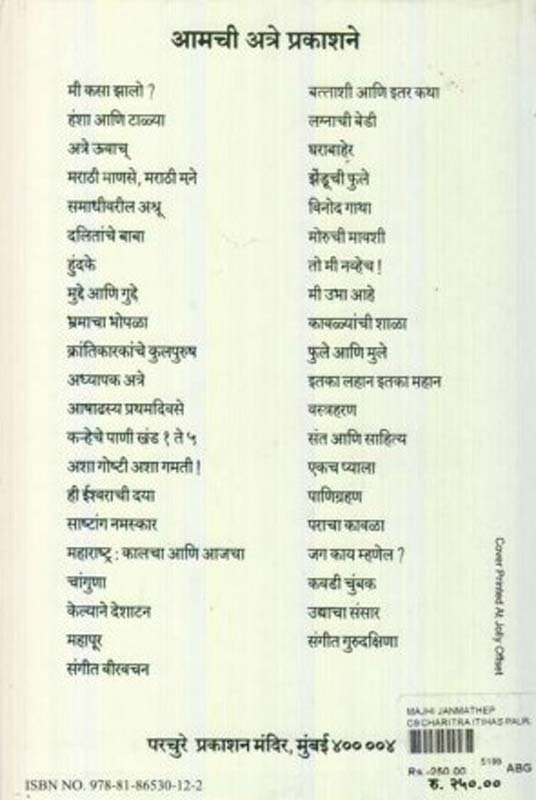 आमची अत्रे प्रकाशने
मी कसा झालो ?
हंशा आणि टाळ्या
अत्रे ऊवाच्
मराठी माणसे, मराठी मने
समाधीवरील अश्रू
दलितांचे बाबा
हुंदके
मुद्दे आणि गुद्दे
भ्रमाचा भोपळा
क्रांतिकारकांचे कुलपुरुष
अध्यापक अत्रे
आषाढस्य प्रथमदिवसे
कऱ्हेचे पाणी खंड १ ते ५
अशा गोष्टी अशा गमती !
ही ईश्वराची दया
साष्टांग नमस्कार
महाराष्ट्र : कालचा आणि आजचा
चांगुणा
केल्याने देशाटन
महापूर
संगीत वीरवचन
बत्ताशी आणि इतर कथा
लग्नाची बेडी
घराबाहेर
झेंडूची फुले
विनोद गाथा
मोरुची मावशी
तो मी नव्हेच !
मी उभा आहे
कावळ्यांची शाळा
फुले आणि मुले
इतका लहान इतका महान
वस्त्रहरण
संत आणि साहित्य
एकच प्याला
पाणिग्रहण
पराचा कावळा
जग काय म्हणेल ?
कवडी चुंबक
उद्याचा संसार
संगीत गुरुदक्षिणा
Cover Printed At Jolly Offset
परचुरे प्रकाशन मंदिर, मुंबई ४०० ००४
MAJHI JANMATHEP
CBCHARITRA ITIHAS PAUR.
5199
Rs. -250.00 ABG
रु. २५०.००
ISBN NO. 978-81-86530-12-2